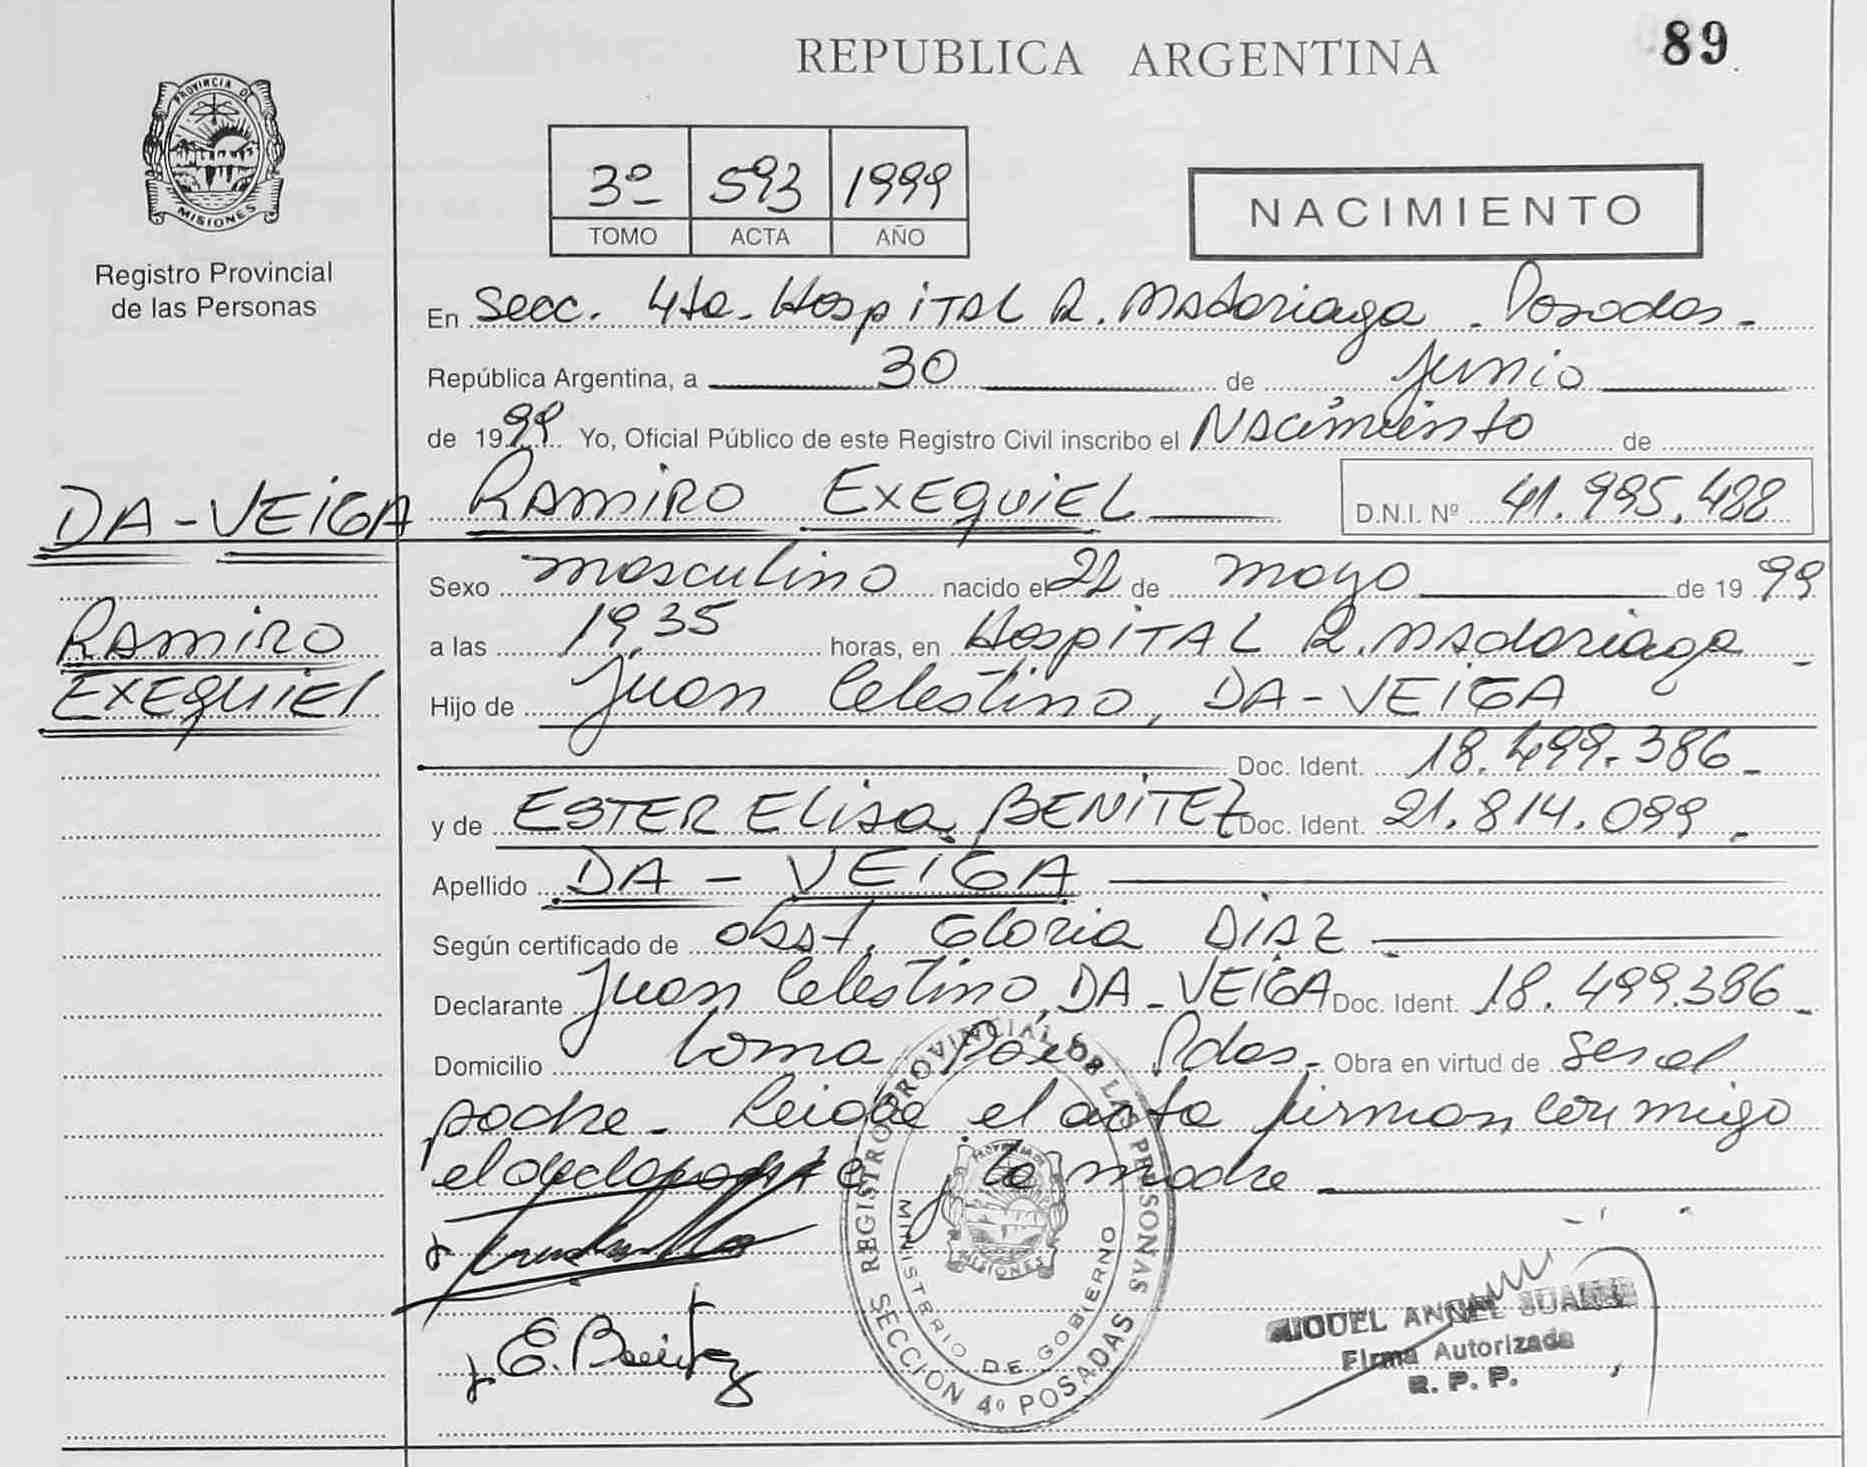 89
REPUBLICA ARGENTINA
PROVINCIA DE
MISIONES
Registro Provincial
de las Personas
3º 593 1999
TOMO ACTA AÑO
NACIMIENTO
En Secc. 4ta. Hospital R. Madariaga - Posadas -
República Argentina, a 30 de junio
de 1999 Yo, Oficial Público de este Registro Civil inscribo el Nacimiento de
DA-VEIGA RAMIRO EXEQUIEL D.N.I. Nº 41.995.488
Sexo masculino nacido el 22 de mayo de 1999
RAMIRO
EXEQUIEL
a las 19,35 horas, en Hospital R. Madariaga -
Hijo de Juan Celestino, DA-VEIGA
Doc. Ident. 18.499.386 -
y de ESTER Elisa, BENITEZ Doc. Ident. 21.814.099 -
Apellido DA - VEIGA
Según certificado de obst. Gloria DIAZ
Declarante Juan Celestino, DA-VEIGA Doc. Ident. 18.499.386 -
Domicilio Loma Pdas. Obra en virtud de ser el
padre - Leida el acta firman conmigo
el declarante y la madre
E. Benitez
REGISTRO PROVINCIAL DE LAS PERSONAS
MINISTERIO DE GOBIERNO
PROVINCIA DE
MISIONES
SECCIÓN 4º POSADAS
MIGUEL ANGEL SUAREZ
Firma Autorizada
R. P. P.